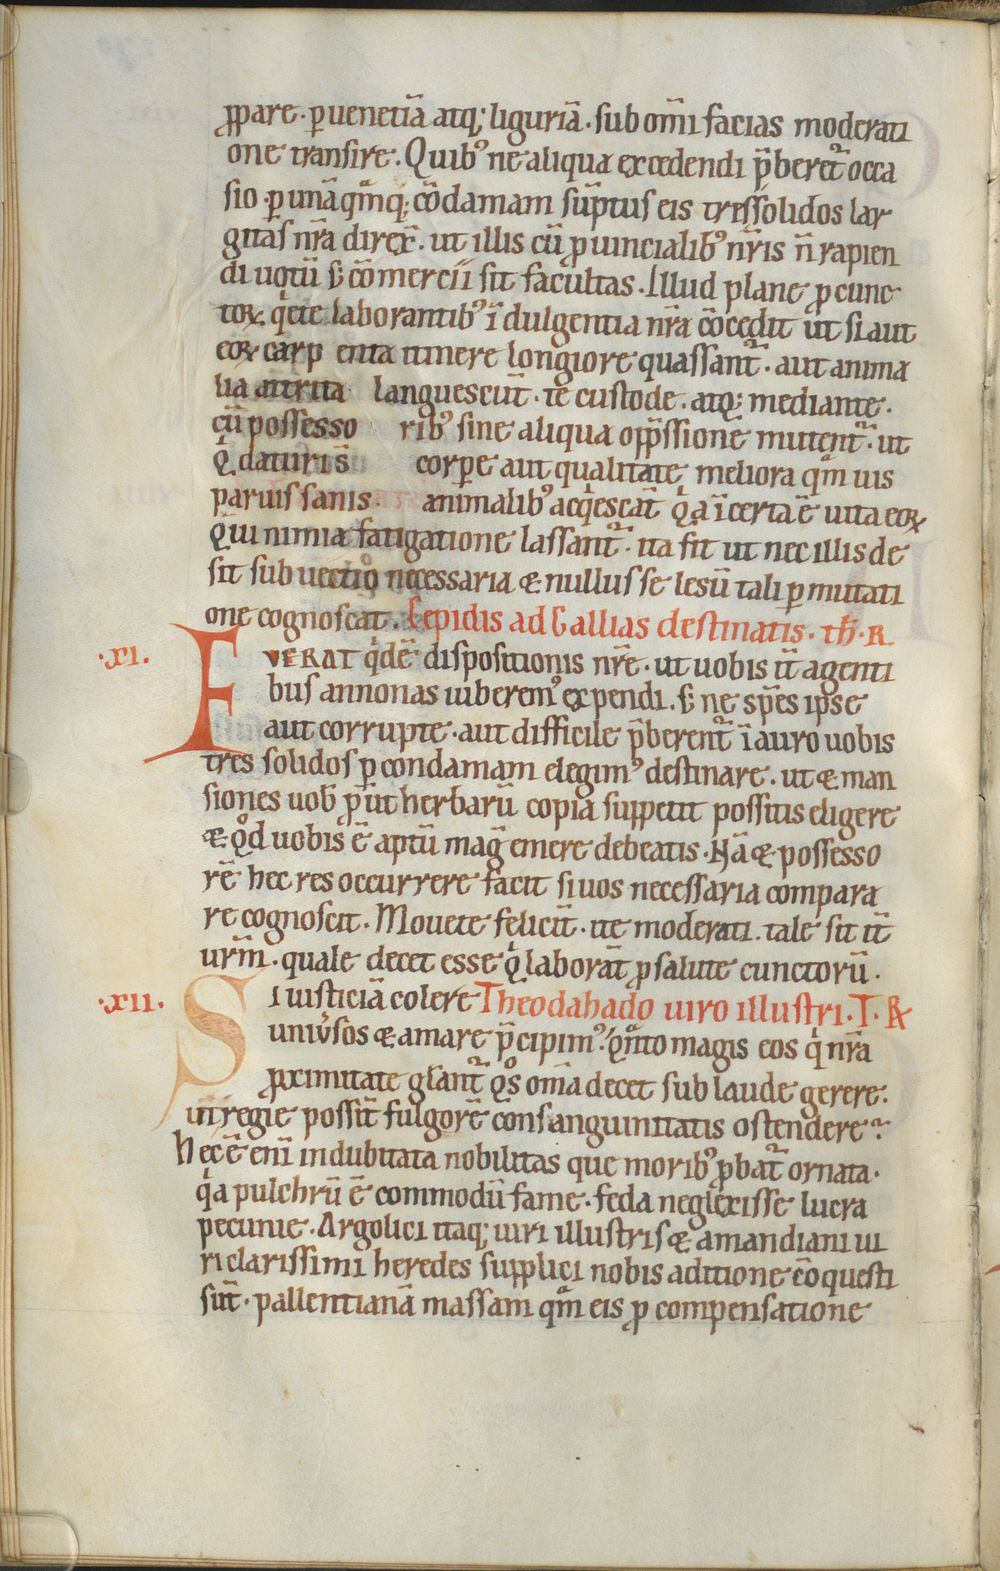 ꝓpare · ꝑ uenetiā atq; liguriā · sub om̄i facias moderati
one transire . Quib᾽ ne aliqua excedendi p̄beret᷑ occa
sio · ꝑ unāqͫq; cōdamam sūptus eis tres solidos lar
gitas nr̄a direx̄ . ut illis cū ꝓuincialib᾽ nr̄is n̄ rapien
di uotū s᷑ cōmercii sit facultas . Illud plane ꝓ cunc
toꝝ qͥete laborantib᾽ īdulgentia nr̄a cōcedit ut si aut
eoꝝ carp enta itinere longiore quassant᷑ . aut anima
lia attrita languescūt . te custode . atq; mediante .
cū possesso rib᾽ sine aliqua opp̄ssione mutent᷑ . ut
q daturis̄ corpe aut qualitate meliora qͫ uis
paruis sanis . animalib᾽ acqͥescāt qͥa īcerta ē uita eoꝝ
Qui nimia fatigatione lassant᷑ . ita fit ut nec illis de
sit sub uectio necessaria & nullus se lesū tali ꝑmutati
one cognoscat . Gepidis ad Gallias destinatis . th̄ . R .
·XI· FVERAT qͥdē dispositionis nr̄e . ut uobis it̄ agenti
bus annonas iuberem᾽ expendi . s᷑ ne sp̄es ipse
aut corrupte . aut difficile p̄berent᷑ ī auro uobis
tres solidos ꝑ condamam elegim᾽ destinare . ut & man
siones uob̄ ꝓut herbarū copia suppetit possitis eligere
& qͦd uobis ē aptū maḡ emere debeatis . Nā & possesso
rē hec res occurrere facit si uos necessaria compara
re cognoscit . Mouete felicit̄ . ite moderati . tale sit it̄
urm̄ . quale decet esse qͥ laborāt ꝓ salute cunctorū .
·XII· SI iusticiā colere Theodahado uiro illustri . T . R
uniu᾽sos & amare p̄cipim᾽ . qͣnto magis eos qͥ nr̄a
ꝓximitate glant᷑ qͦs om̄a decet sub laude gerere .
ut regie possīt fulgorē consanguinitatis ostendere .
Hec ē enī indubitata nobilitas que morib᾽ ꝓbat᷑ ornata .
qͥa pulchrū ē commodū fame . feda neglexisse lucra
pecunie . Argolici itaq; uiri illustris & amandiani ui
ri clarissimi heredes supplici nobis aditione cōquesti
sūt . pallentianā massam qͫ eis ꝓ compensatione